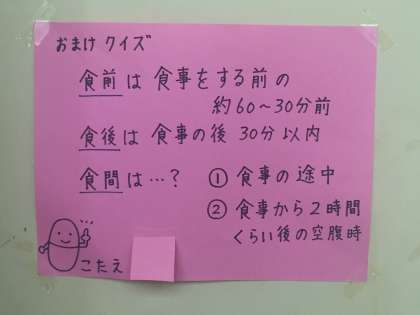 おまけ クイズ
食前は 食事をする前の
約60～30分前
食後は 食事の後 30分以内
食間は…？ ① 食事の途中
② 食事から2時間
くらい後の空腹時
こたえ